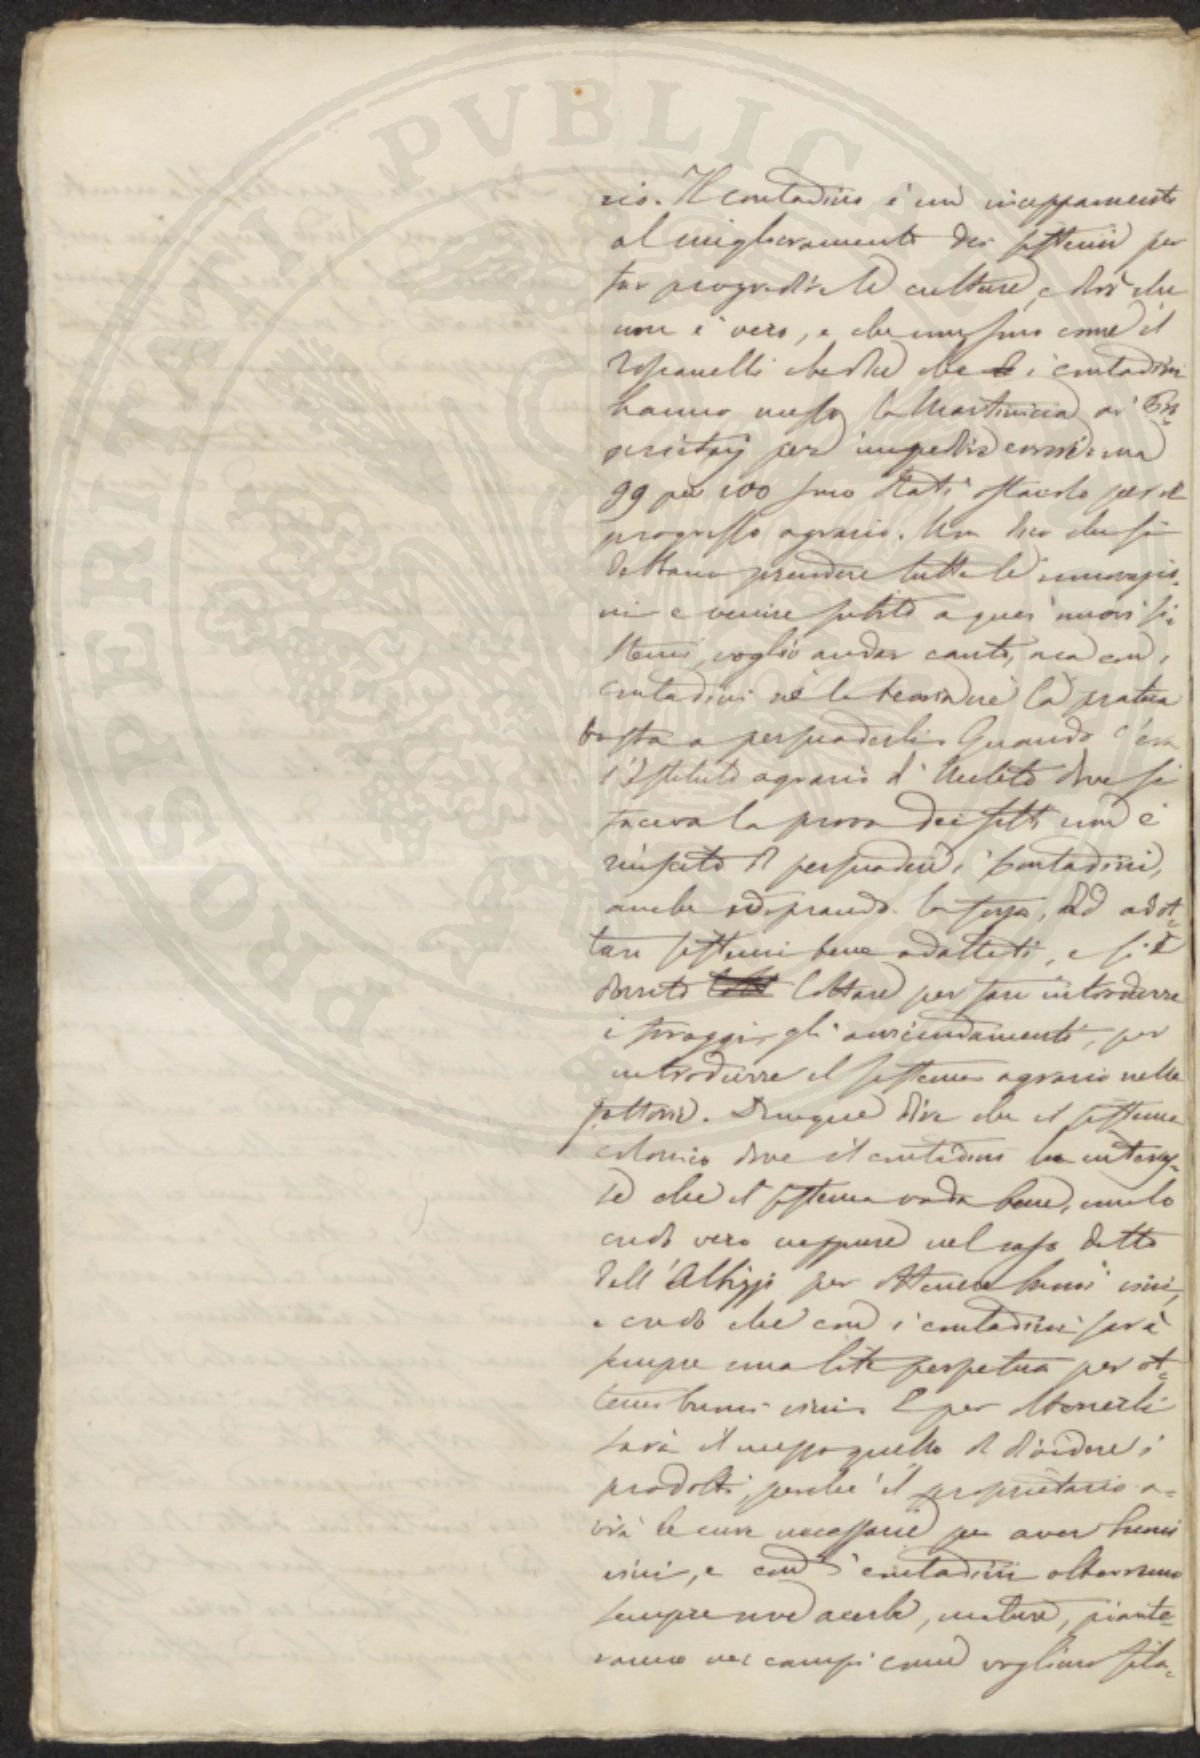 PROSPERITATI PVBLICAE
rio. Il contadino è un inceppamento
al miglioramento dei sistemi per
far progredire le culture, e dire che
non è vero, e che uno sino come il
che dice che i contadini
hanno messo la Martinicca ai
per impedire ma
99 per 100 sono stati ostacolo per il
progresso agrario. Non dico che si
debbano prendere tutte le innovazio-
ni e venire subito a quei nuovi si-
stemi, voglio andar cauto, ma con i
contadini nè la teoria nè la pratica
basta a persuaderli. Quando c'era
l'Istituto agrario di Meleto dove si
faceva la prova dei fatti non è
riuscito di persuadere i contadini,
anche adoprando la forza, ad adot-
tare sistemi bene adattati, e si è
dovuto lottare per fare introdurre
i foraggi, gli avvicendamenti, per
introdurre il sistema agrario nelle
fattorie. Dunque dire che il sistema
colonico dove il contadino ha interes-
se che il sistema vada bene, non lo
credo vero neppure nel caso detto
dell'Albizzi per ottenere buoni vini,
e credo che con i contadini sarà
sempre una lite perpetua per ot-
tener buoni vini. E per ottenerli
sarà il mezzo quello di dividere i
prodotti, perchè il proprietario a-
vrà le cure necessarie per aver buoni
vini, e con i contadini otterranno
sempre uve acerbe, mature, piante-
ranno nei campi come vogliono fila-